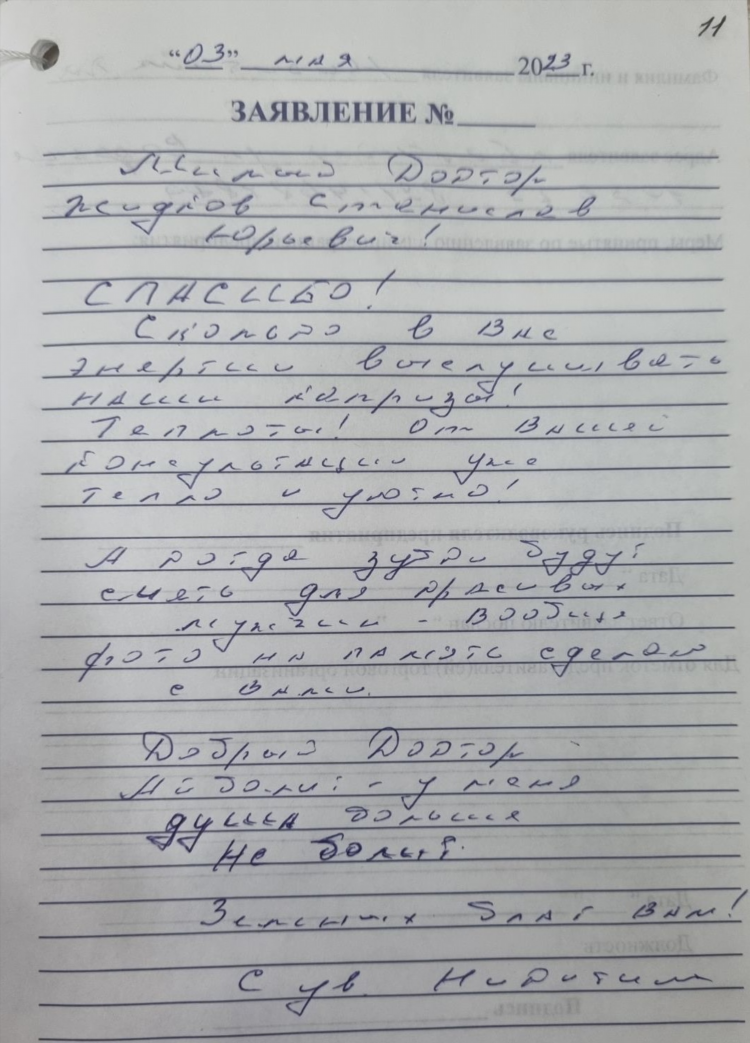 11
"03" мая 2023 г.
ЗАЯВЛЕНИЕ №
Милый Доктор
Жидков Станислав
Юрьевич!
СПАСИБО!
Сколько в Вас
энергии выслушивать
наши капризы!
Теплоты! От Вашей
консультации уже
тепло и уютно!
А когда зубки будут
сиять для красивых
мужчин - вообще
фото на память сделаю
с Вами.
Добрый Доктор
Айболит - у меня
душа больше
не болит.
Земных благ Вам!
С ув.